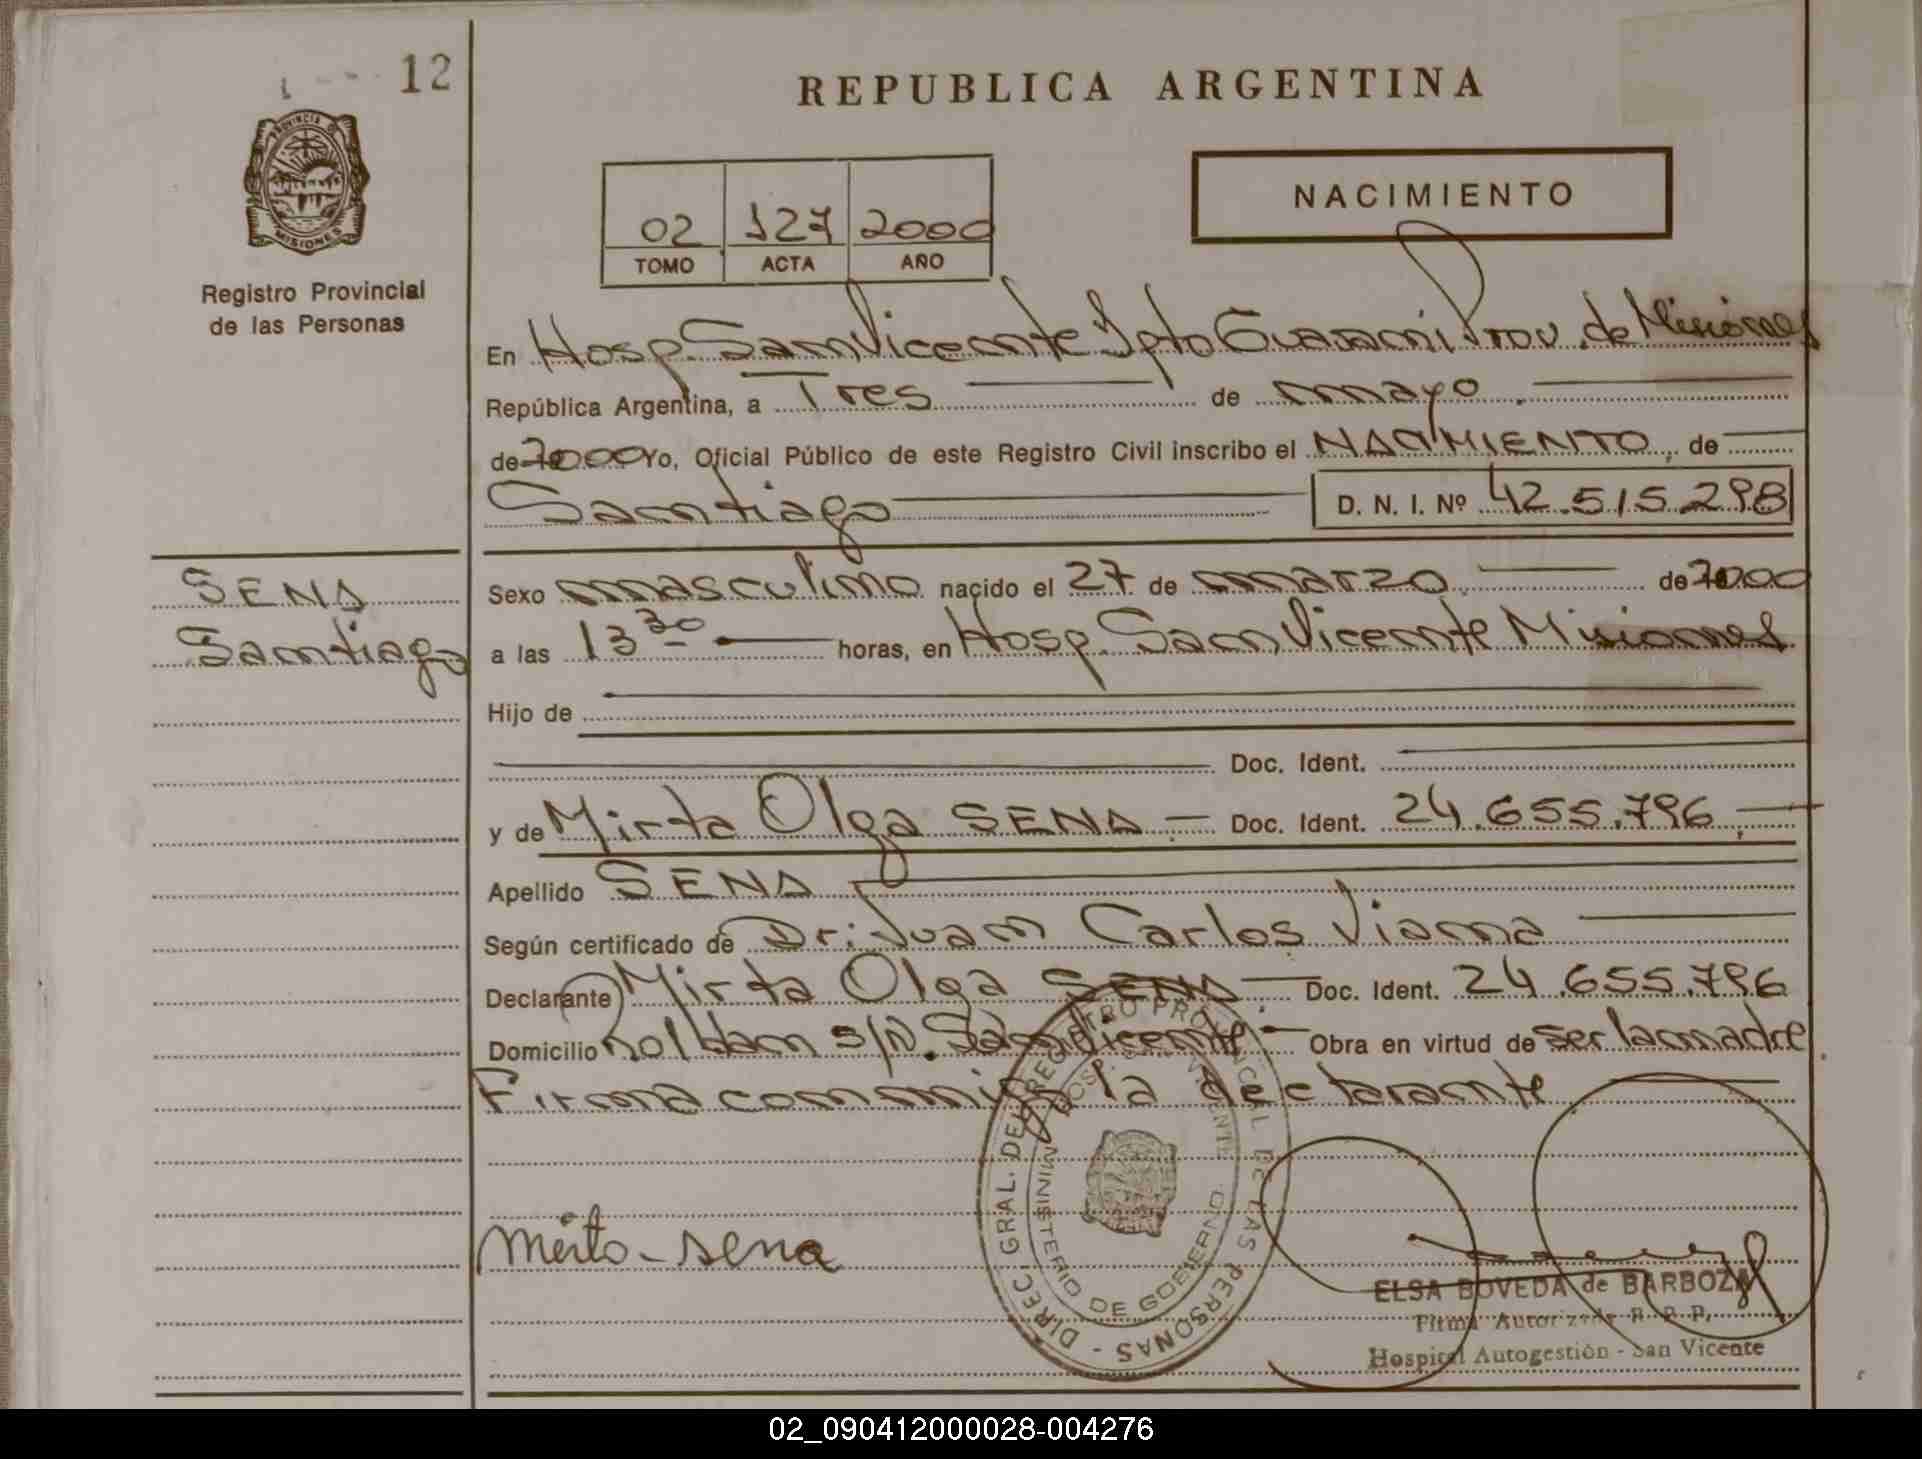 12
REPUBLICA ARGENTINA
PROVINCIA DE
MISIONES
Registro Provincial
de las Personas
02 127 2000
TOMO ACTA AÑO
NACIMIENTO
En Hosp. San Vicente Dpto Guarani Prov. de Misiones
República Argentina, a Tres de mayo
de 2000 Yo, Oficial Público de este Registro Civil inscribo el NACIMIENTO, de
Santiago D. N. I. Nº 42.515.298
SENA
Santiago
Sexo masculino nacido el 27 de marzo de 2000
a las 13 30 horas, en Hosp. San Vicente Misiones
Hijo de
Doc. Ident.
y de Mirta Olga SENA Doc. Ident. 24.655.796
Apellido SENA
Según certificado de Dr. Juan Carlos Viana
Declarante Mirta Olga SENA Doc. Ident. 24.655.796
Domicilio s/N. San Vicente Obra en virtud de ser la madre
Firma conmigo la declarante
DIREC. GRAL. DEL REGISTRO PROVINCIAL DE LAS PERSONAS -
HOSP. SAN VICENTE
MINISTERIO DE GOBIERNO
Mirta - Sena
ELSA BOVEDA de BARBOZA
Firma Autorizada R. P. P.
Hospital Autogestión - San Vicente
02_090412000028-004276